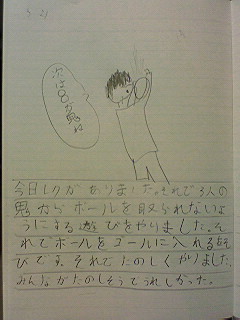 次は○○が鬼ね
今日レクがありました。それで3人の
鬼からボールを取られないよ
うにする遊びをやりました。そ
れでボールをゴールに入れる遊
びです。それでたのしくやりました。
みんながたのしそうでうれしかった。